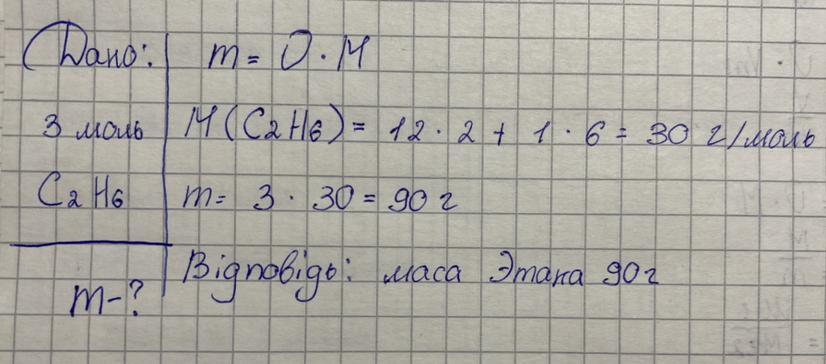 Дано:
3 моль
C2H6
m-?
m = ν · M
M(C2H6) = 12 · 2 + 1 · 6 = 30 г/моль
m = 3 · 30 = 90 г
Відповідь: маса Этана 90 г